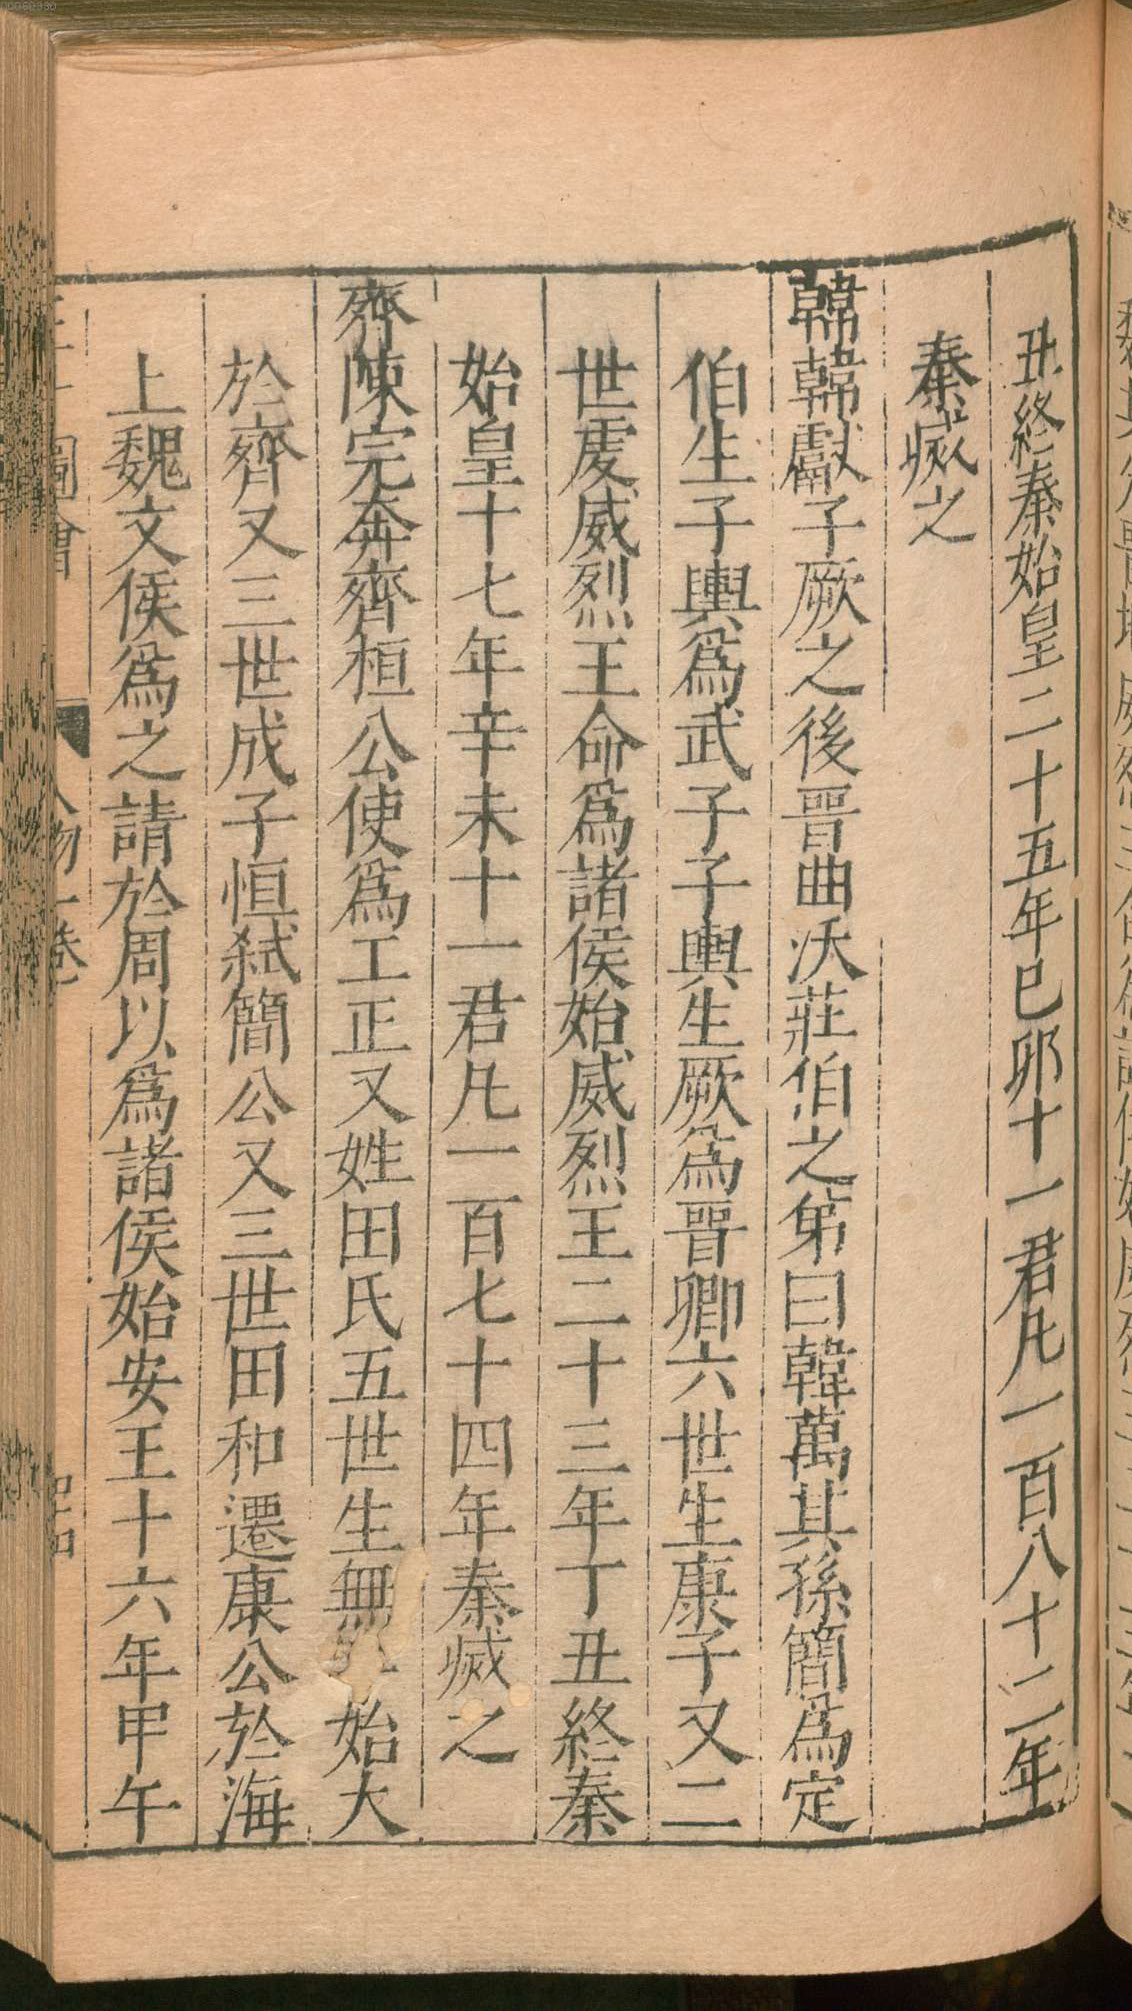 丑終秦始皇二十五年巳卯十一君凡一百八十二年
秦滅之
韓韓獻子厥之後晉曲沃莊伯之弟曰韓萬其孫簡為定
伯生子輿爲武子子輿生厥爲晉卿六世生康子又二
世虔威烈王命爲諸侯始威烈王二十三年丁丑終秦
始皇十七年辛未十一君凡一百七十四年秦滅之
齊陳完奔齊桓公使爲工正又姓田氏五世生無始大
於齊又三世成子恒弒簡公又三世田和遷康公於海
上魏文侯爲之請於周以爲諸侯始安王十六年甲午
圖會 人物一卷